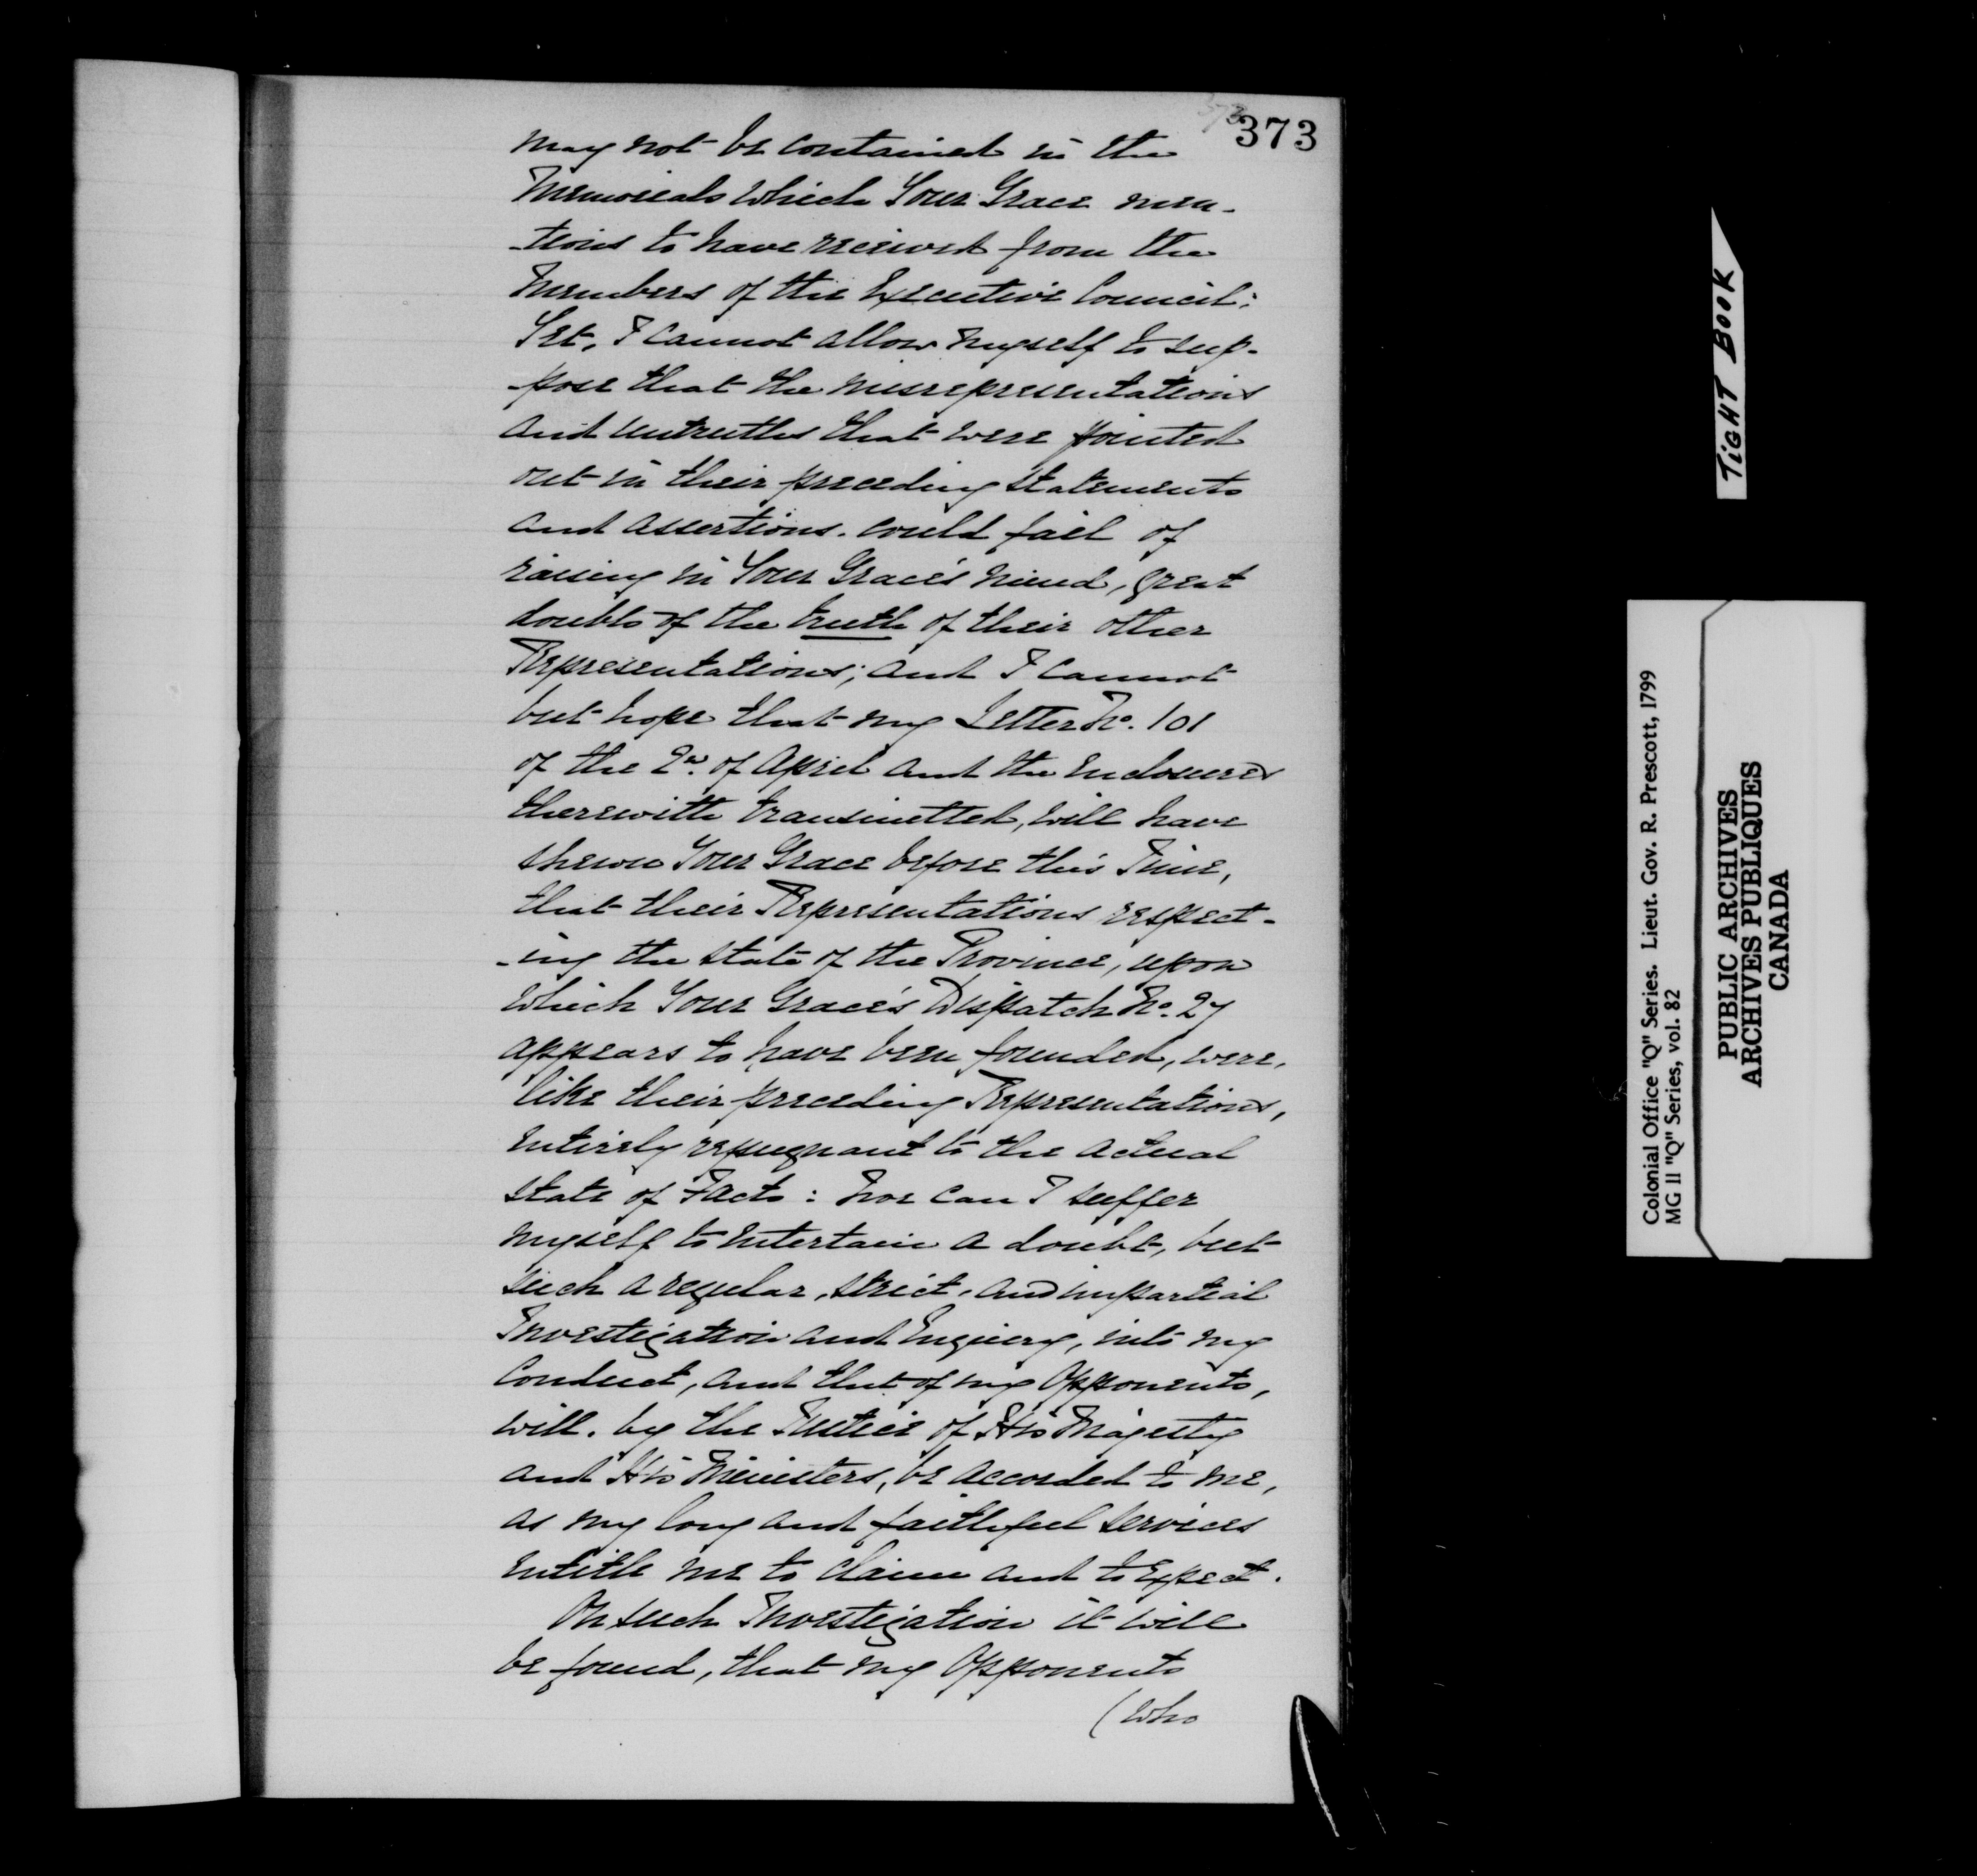 373
373
may not be contained in the
Memorials which Your Grace men-
-tions to have received from the
Members of the Executive Council:
Yet, I cannot allow myself to sup-
-pose that the misrepresentations
and untruths that were pointed
out in their preceding statements
and assertions. could fail of
raising in Your Grace's mind, great
doubts of the truth of their other
Representations; and I cannot
but hope that my Letter No. 101
of the 2d. of April and the Enclosures
therewith transmitted, will have
shewn Your Grace before this Time,
that their Representations respect-
-ing the state of the Province, upon
which Your Grace's Dispatch No. 27
appears to have been founded, were,
like their preceding Representations,
entirely repugnant to the actual
state of Facts: nor can I suffer
myself to entertain a doubt, but
such a regular, strict, and impartial
Investigation and Enquiry, into my
Conduct, and that of my Opponents,
will, by the Justice of His Majesty
and His Ministers, be accorded to me,
as my long and faithful services
entitle me to claim and to expect.
On such Investigation it will
be found, that my Opponents
(who
TIGHT BOOK
Colonial Office "Q" Series. Lieut. Gov. R. Prescott, 1799
MG 11 "Q" Series, vol. 82
PUBLIC ARCHIVES
ARCHIVES PUBLIQUES
CANADA